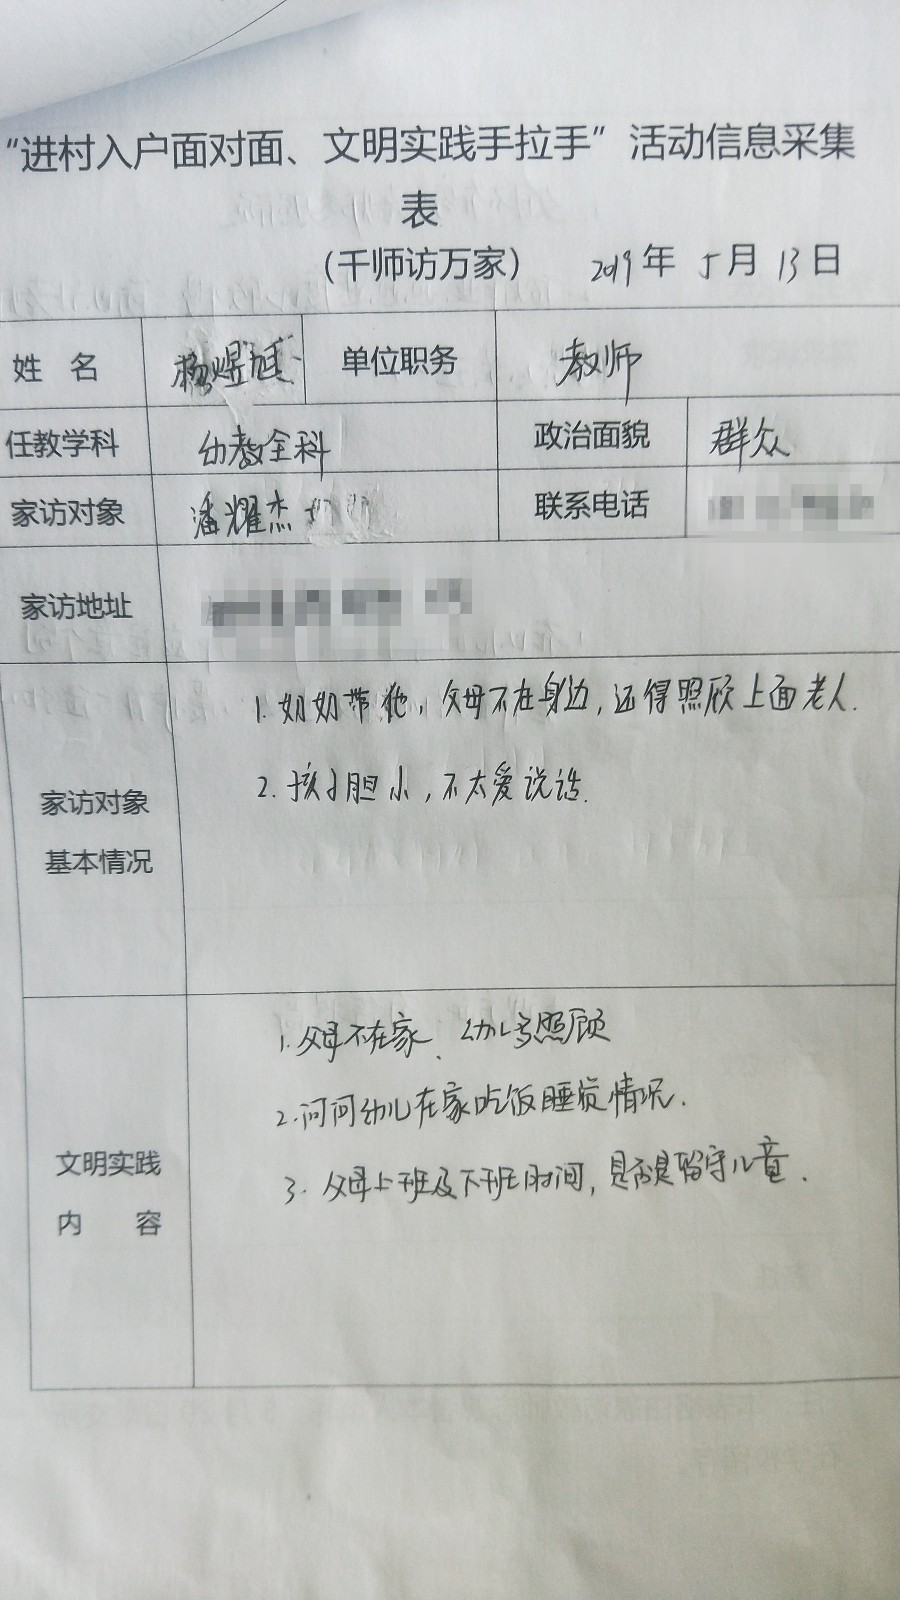 “进村入户面对面、文明实践手拉手”活动信息采集
表
（千师访万家） 2019年 5月 13日
姓 名 杨煜 单位职务 教师
任教学科 幼教全科 政治面貌 群众
家访对象 潘耀杰 联系电话
家访地址
1. 奶奶带他，父母不在身边，还得照顾上面老人.
2. 孩子胆小，不太爱说话.
家访对象
基本情况
1. 父母不在家、幼儿照顾
2. 问问幼儿在家吃饭睡觉情况.
3. 父母上班及下班时间，是不是留守儿童.
文明实践
内 容